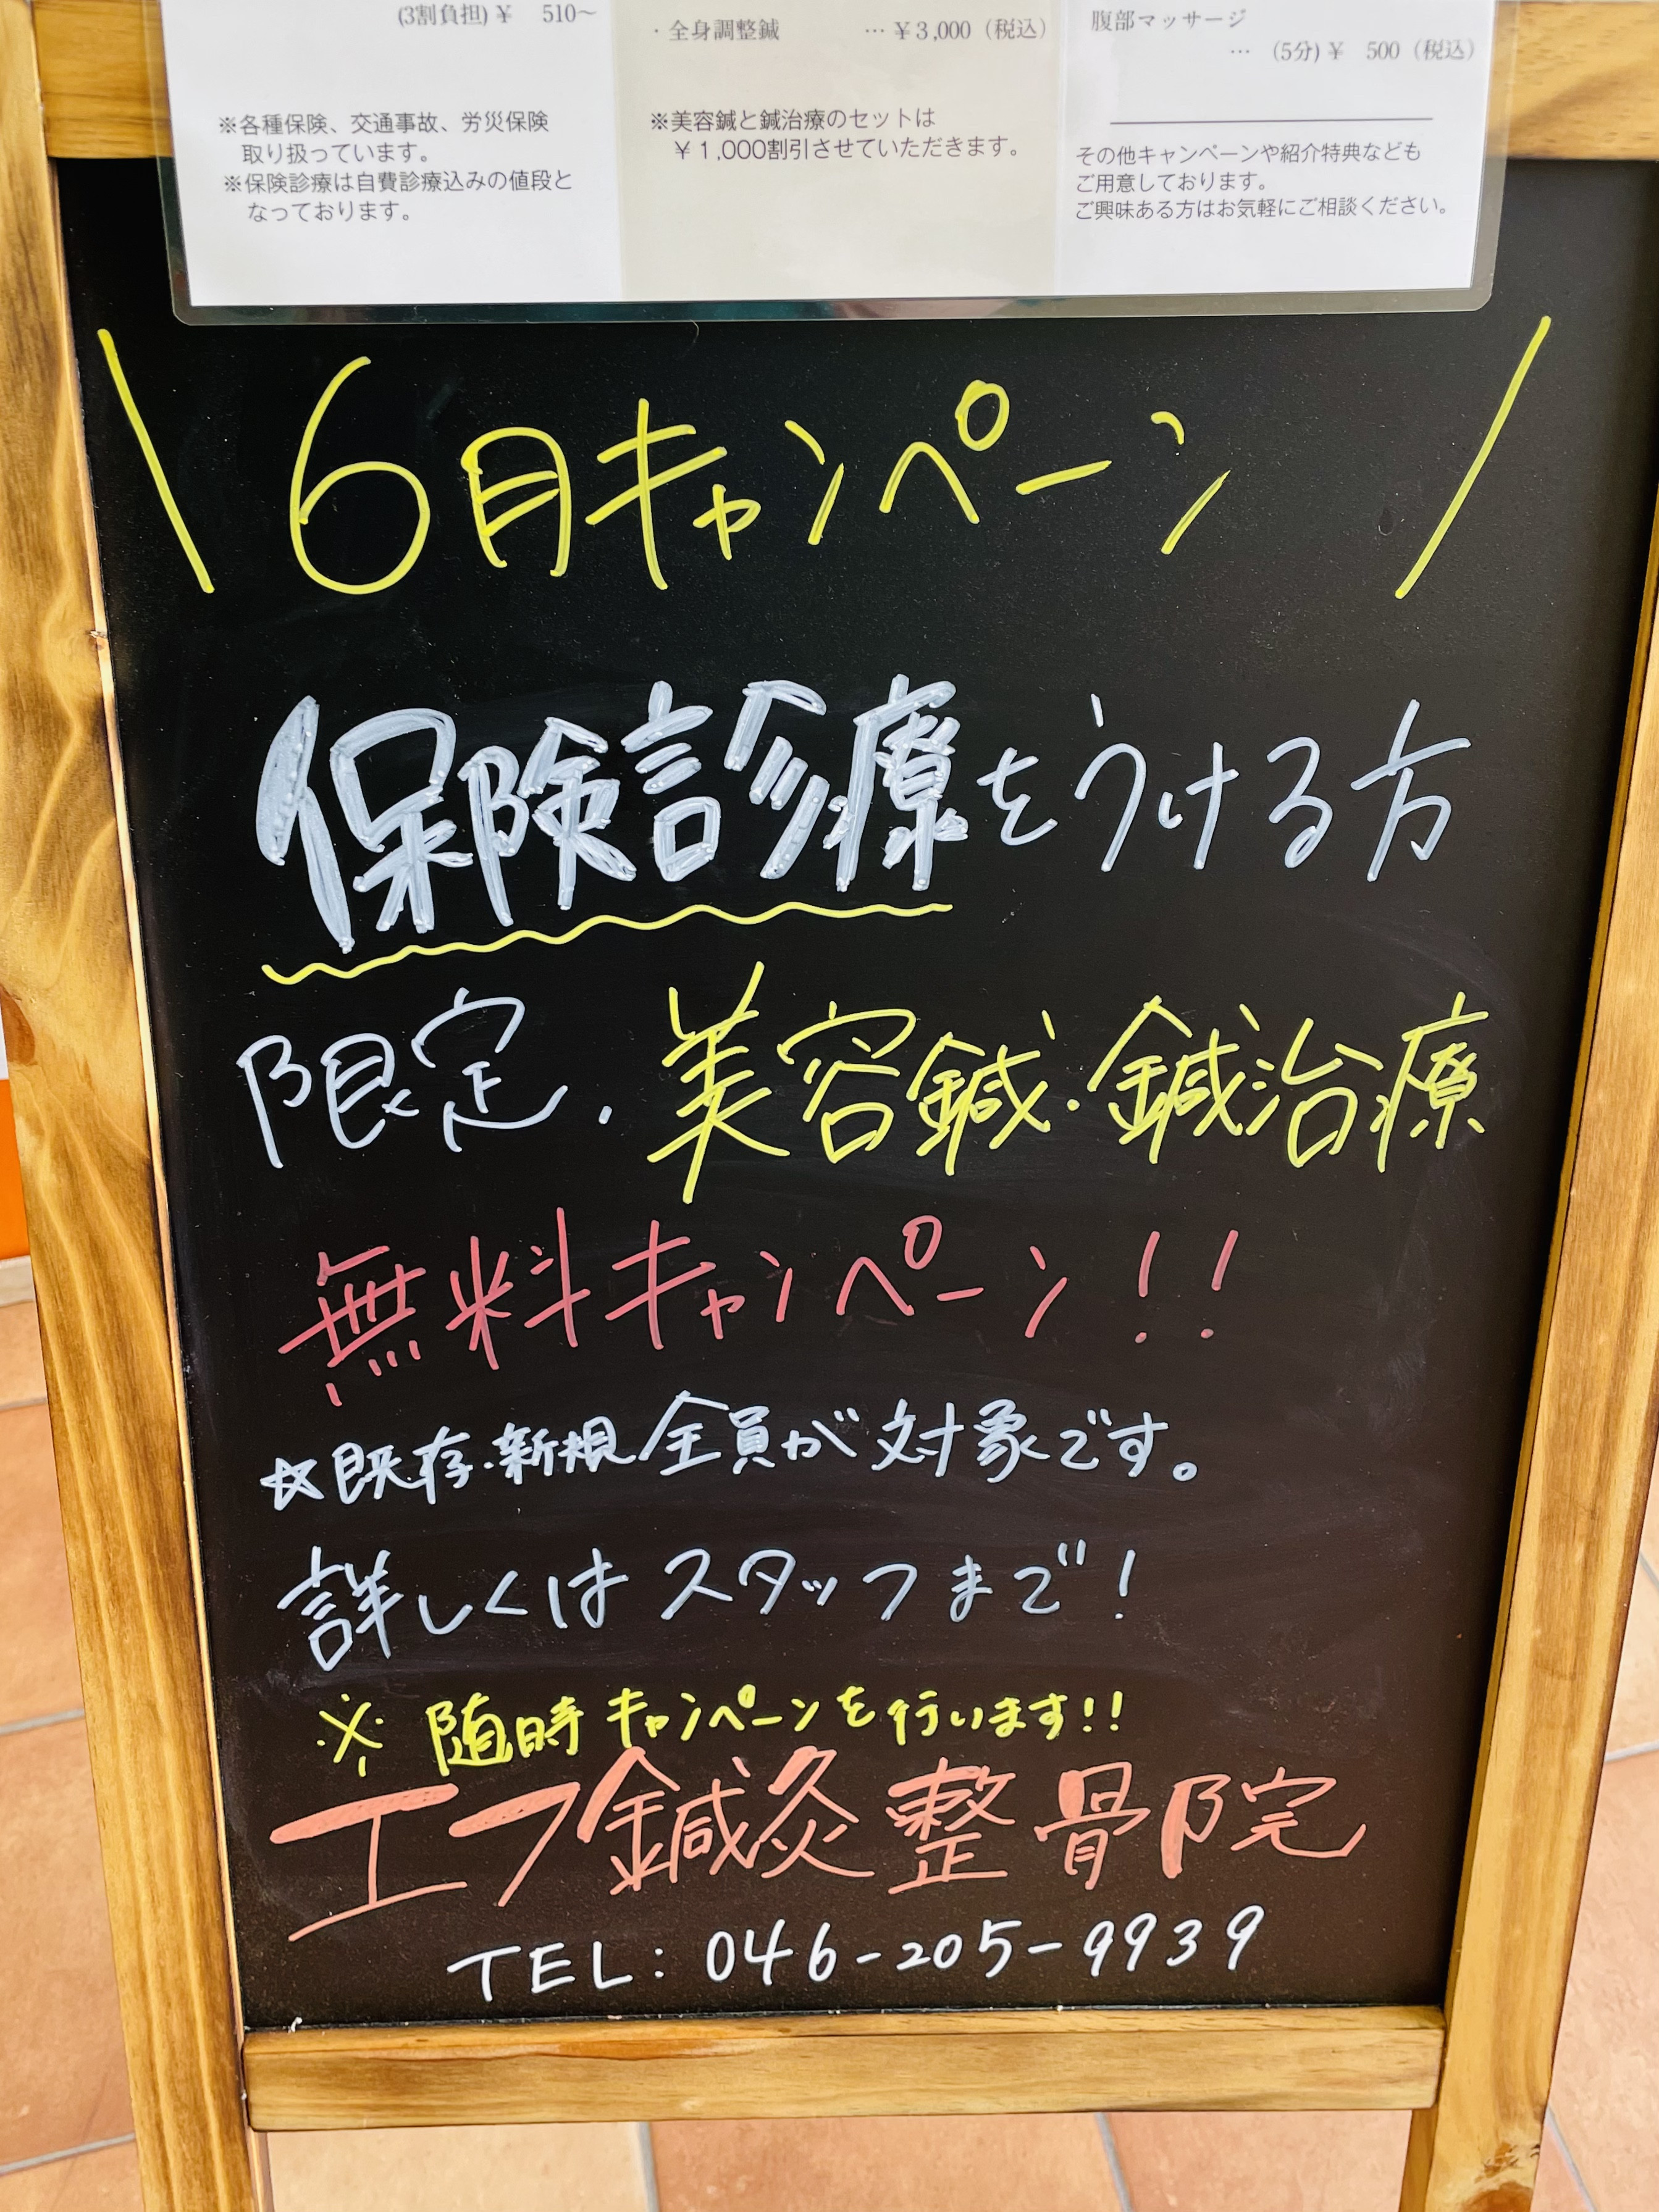 (3割負担)¥ 510〜
※各種保険、交通事故、労災保険
取り扱っています。
※保険診療は自費診療込みの値段と
なっております。
・全身調整鍼 … ¥3,000（税込）
※美容鍼と鍼治療のセットは
¥1,000割引させていただきます。
腹部マッサージ
… (5分)¥ 500（税込）
その他キャンペーンや紹介特典なども
ご用意しております。
ご興味ある方はお気軽にご相談ください。
\ 6月キャンペーン /
保険診療をうける方
限定・美容鍼・鍼治療
無料キャンペーン!!
☆既存・新規 全員が対象です。
詳しくはスタッフまで!
※ 随時キャンペーンを行います!!
エフ鍼灸整骨院
TEL: 046-205-9939